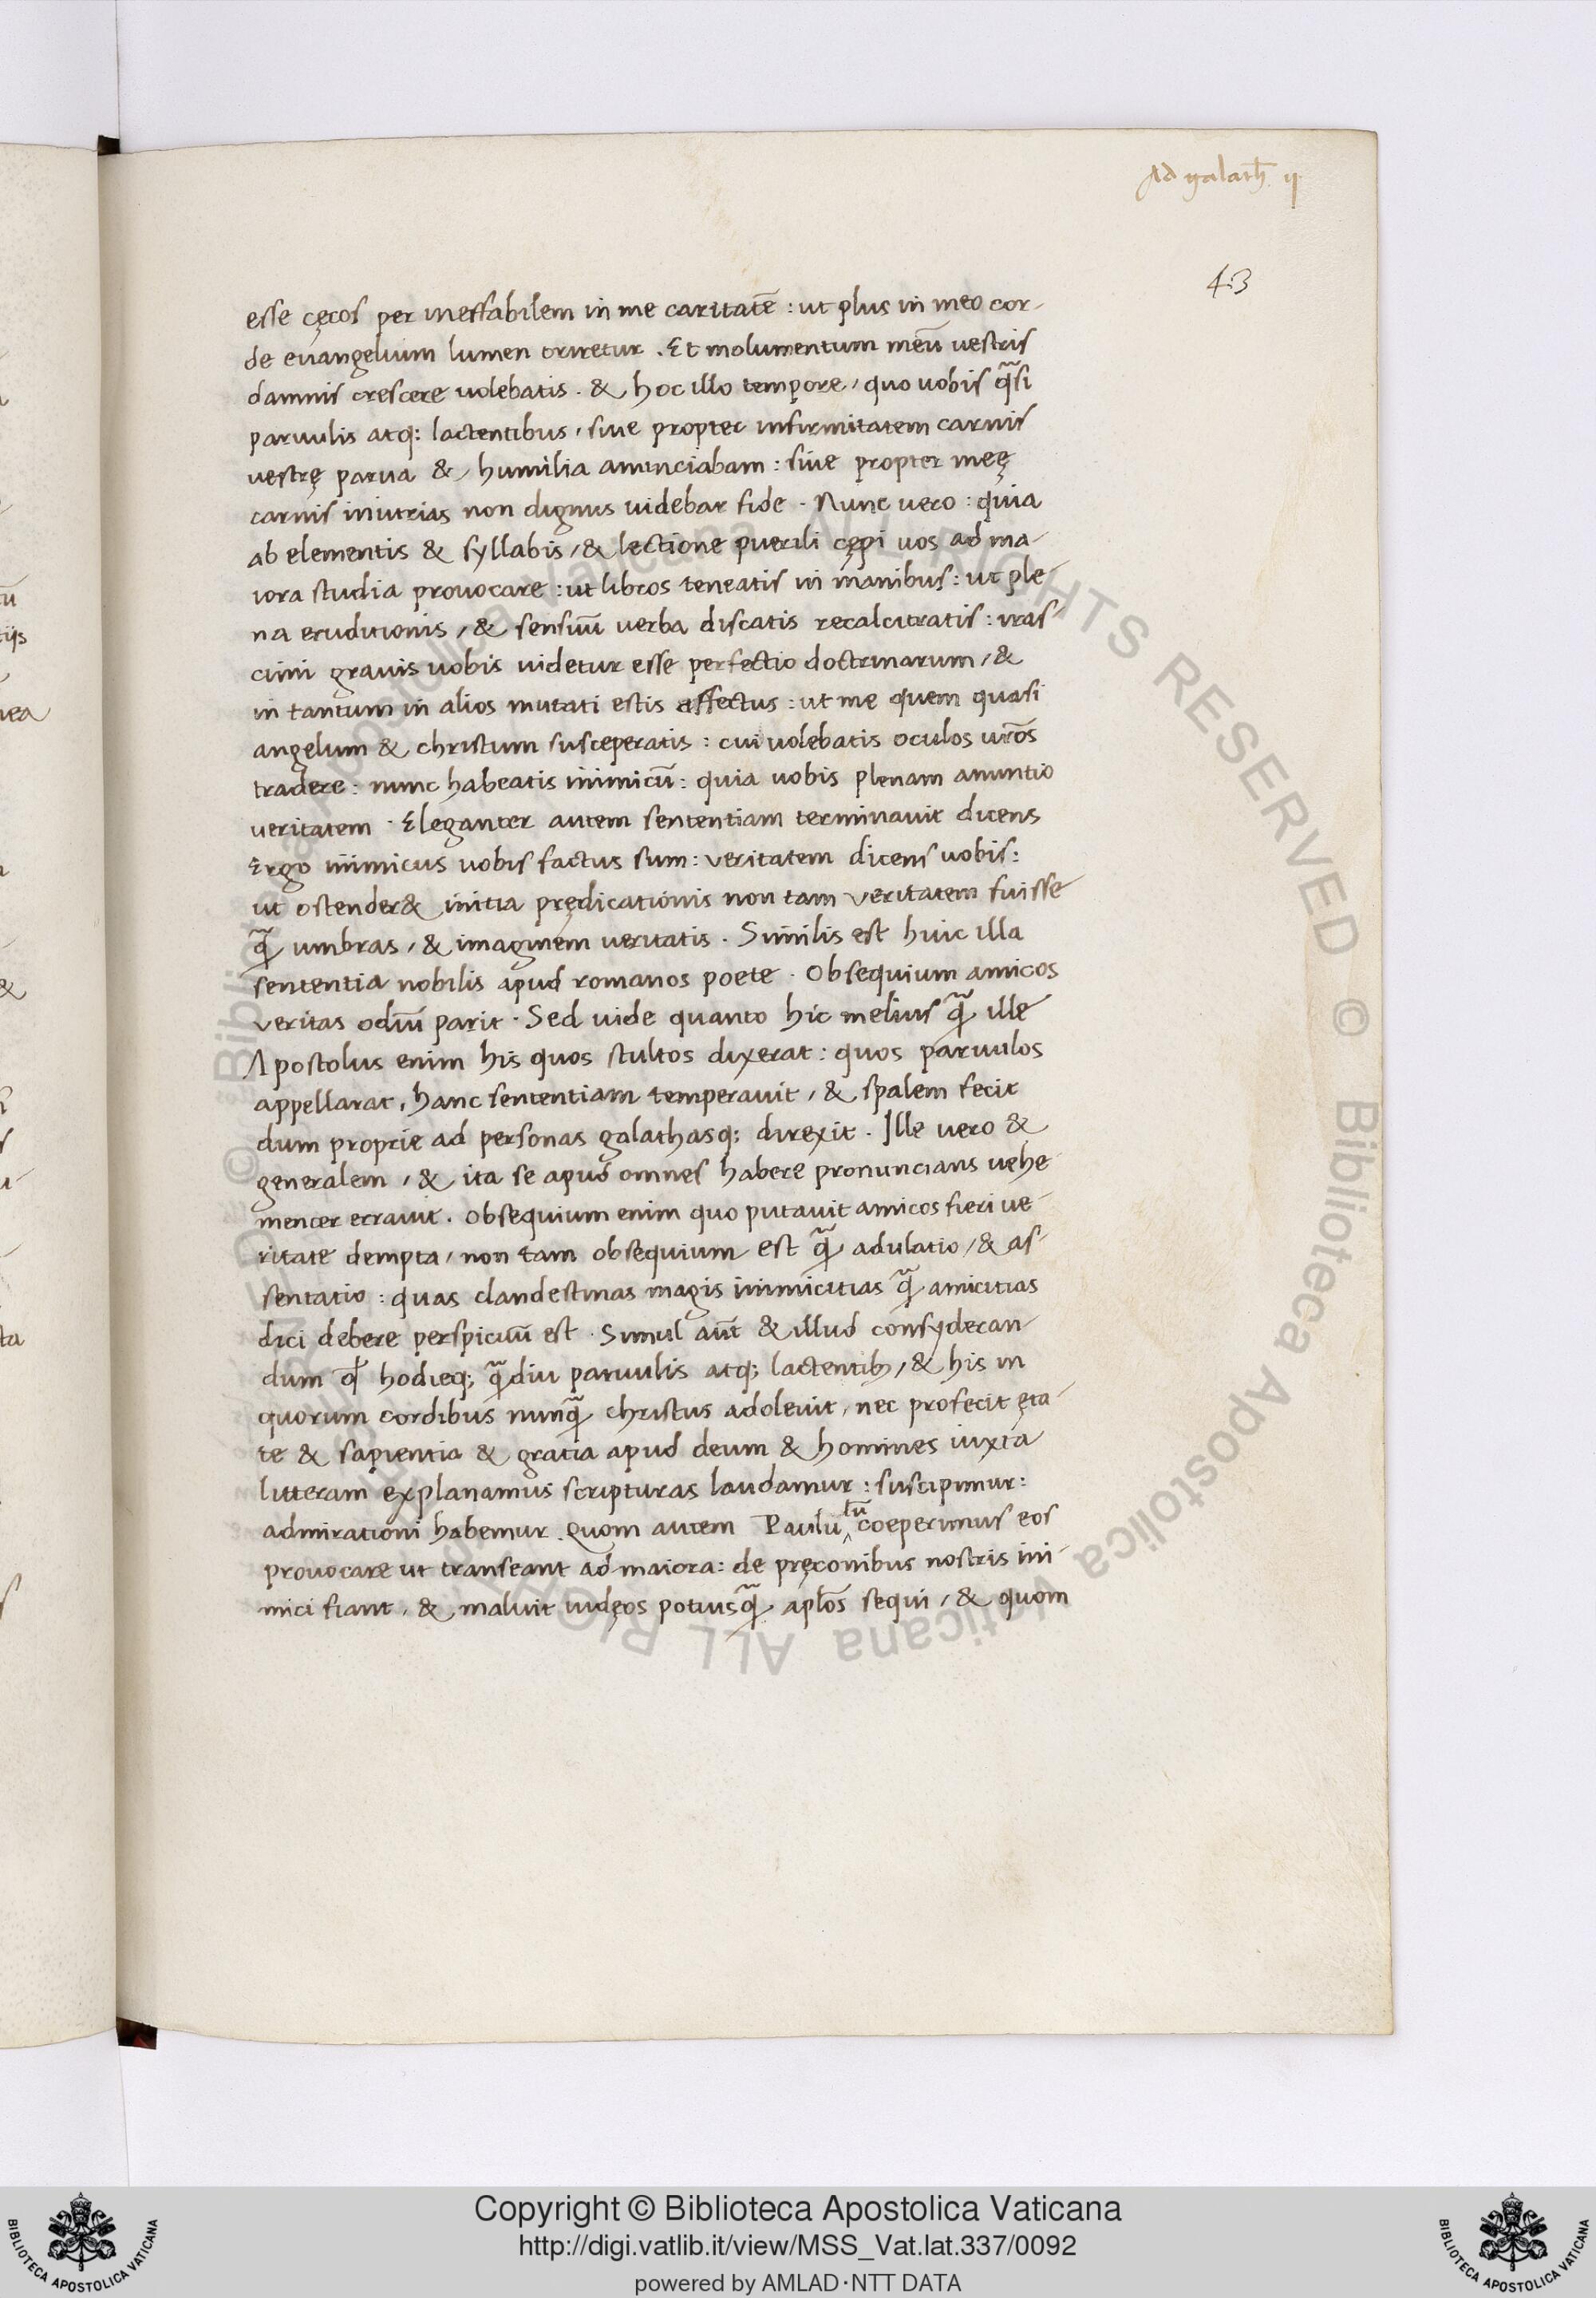 Ad galath̄ ij
43
esse cęcos per ineffabilem in me caritatē : ut plus in meo cor-
de evangelium lumen oriretur . Et molumentum meū vestris
damnis crescere uolebatis . & hoc illo tempore, quo uobis q̃si
paruulis atq; lactentibus, siue propter infirmitatem carnis
vestrę parua & humilia anunciabam : siue propter meę
carnis iniurias non dignus uidebar fide . Nunc uero : quia
ab elementis & syllabis, & lectione puerili cępi uos ad ma-
iora studia prouocare : ut libros teneatis in manibus : ut ple-
na eruditionis, & sensuū uerba discatis recalcitratis : iras-
cimi grauis uobis uidetur esse perfectio doctrinarum, &
in tantum in alios mutati estis affectus : ut me quem quasi
angelum & christum susceperatis : cui uolebatis oculos ur̄os
tradere : nunc habeatis inimicū : quia uobis plenam anuntio
ueritatem . Eleganter autem sententiam terminauit dicens
Ergo inimicus uobis factus sum : veritatem dicens uobis :
ut ostender& initia prędicationis non tam veritatem fuisse
q̃ umbras, & imaginem ueritatis . Similis est huic illa
sententia nobilis apud romanos poete . Obsequium amicos
veritas odiū parit . Sed uide quanto hic melius q̃ ille
Apostolus enim his quos stultos dixerat : quos paruulos
appellarat, hanc sententiam temperauit, & spalem fecit
dum proprie ad personas galathasq; direxit . Ille uero &
generalem, & ita se apud omnes habere pronuncians uehe-
menter errauit . Obsequium enim quo putauit amicos fieri ue-
ritate dempta, non tam obsequium est q̃ adulatio, & as-
sentatio : quas clandestinas magis inimicitias q̃ amicitias
dici debere perspicuū est . Simul aūt & illud consyderan-
dum ꝙ hodieq; q̃diu paruulis atq; lactentib;, & his in
quorum cordibus nunq̃ christus adoleuit, nec profecit ęta-
te & sapientia & gratia apud deum & homines iuxta
litteram explanamus scripturas laudamur : suscipimur :
admirationi habemur . Quom autem Paulū tū coeperimus eos
prouocare ut transeant ad maiora : de pręconibus nostris ini-
mici fiant, & maluit iudęos potius q̃ apl̄os sequi, & quom
© Biblioteca Apostolica Vaticana ALL RIGHTS RESERVED © Biblioteca Apostolica Vaticana ALL RIGHTS RESERVED
Copyright © Biblioteca Apostolica Vaticana
http://digi.vatlib.it/view/MSS_Vat.lat.337/0092
powered by AMLAD·NTT DATA
BIBLIOTECA APOSTOLICA VATICANA
BIBLIOTECA APOSTOLICA VATICANA